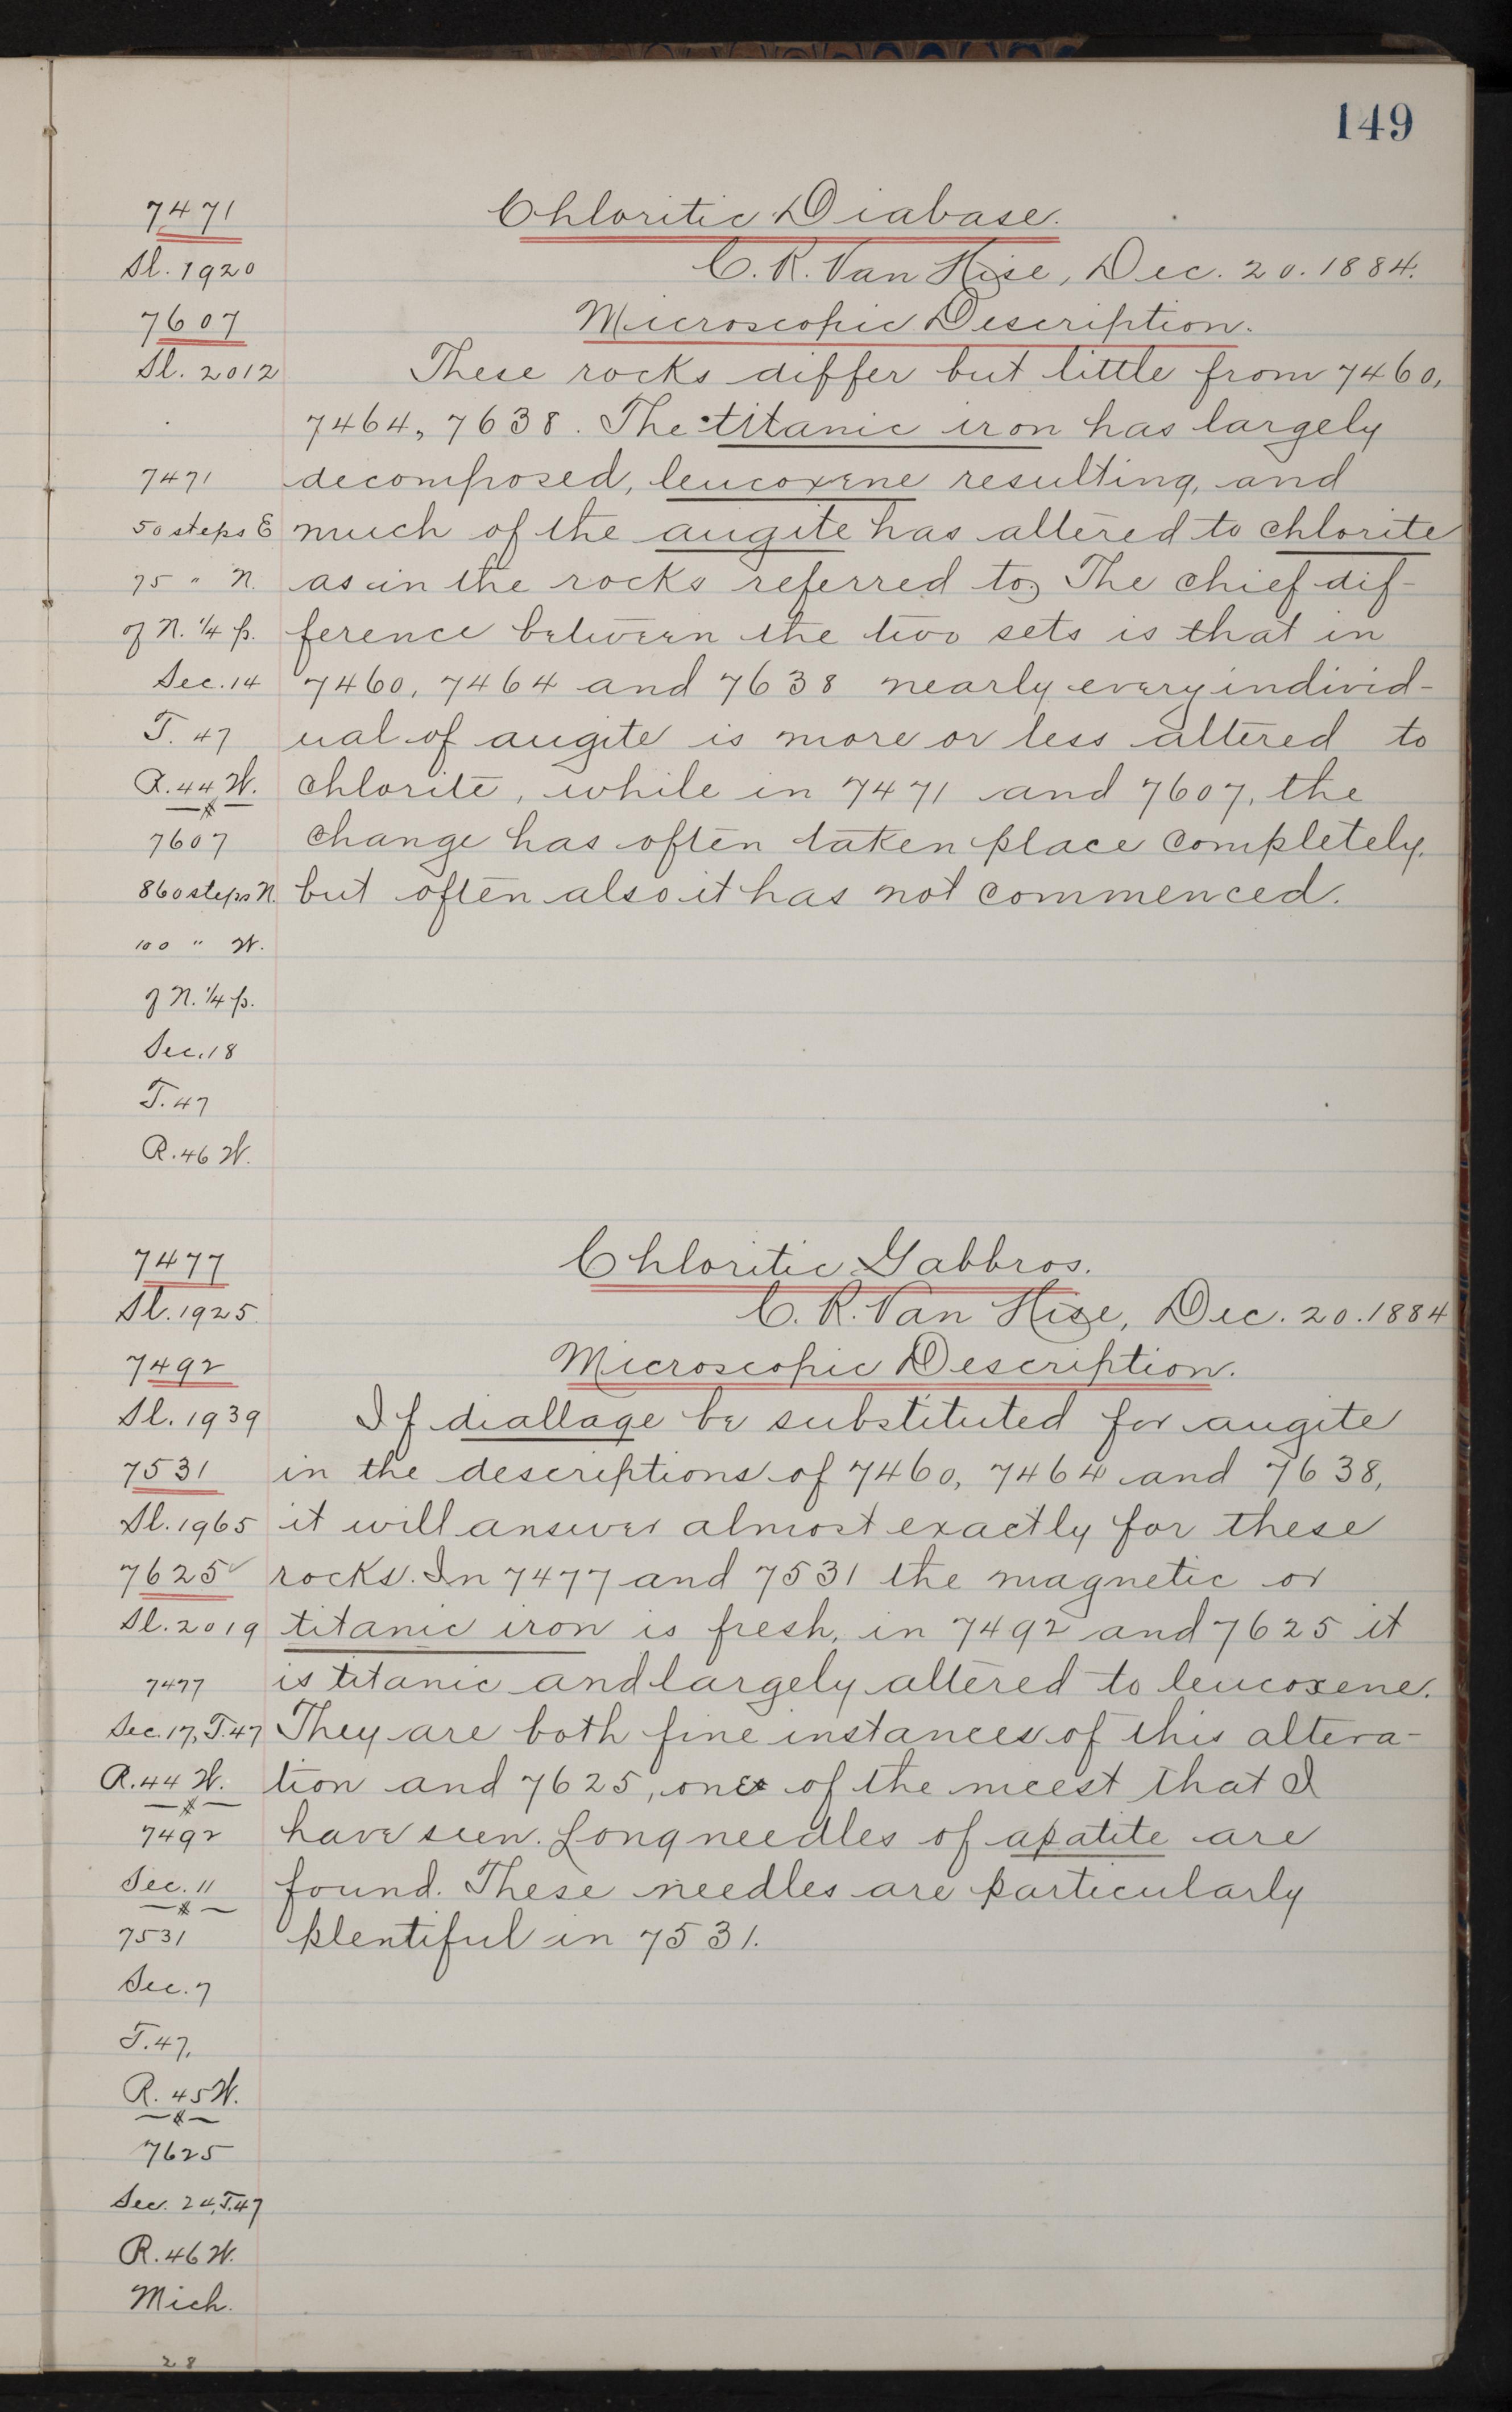 149
7471 Chloritic Diabase.
Sl. 1920 C. R. Van Hise, Dec. 20. 1884.
7607 Microscopic Description.
Sl. 2012 These rocks differ but little from 7460,
7464, 7638. The titanic iron has largely
7471 decomposed, leucoxene resulting, and
50 steps E much of the augite has altered to chlorite
75 " N. as in the rocks referred to. The chief dif-
of N. 1/4 p. ference between the two sets is that in
Sec. 14 7460, 7464 and 7638 nearly every individ-
T. 47 ual of augite is more or less altered to
R. 44 W. chlorite, while in 7471 and 7607, the
7607 change has often taken place completely,
860 steps N. but often also it has not commenced.
100 " W.
of N. 1/4 p.
Sec. 18
T. 47
R. 46 W.
7477 Chloritic Gabbros.
Sl. 1925 C. R. Van Hise, Dec. 20. 1884
7492 Microscopic Description.
Sl. 1939 If diallage be substituted for augite
7531 in the descriptions of 7460, 7464 and 7638,
Sl. 1965 it will answer almost exactly for these
7625 rocks. In 7477 and 7531 the magnetic or
Sl. 2019 titanic iron is fresh, in 7492 and 7625 it
7477 is titanic and largely altered to leucoxene.
Sec. 17, T. 47 They are both fine instances of this altera-
R. 44 W. tion and 7625, one of the nicest that I
7492 have seen. Long needles of apatite are
Sec. 11 found. These needles are particularly
7531 plentiful in 7531.
Sec. 7
T. 47,
R. 45 W.
7625
Sec. 24, T. 47
R. 46 W.
Mich.
28